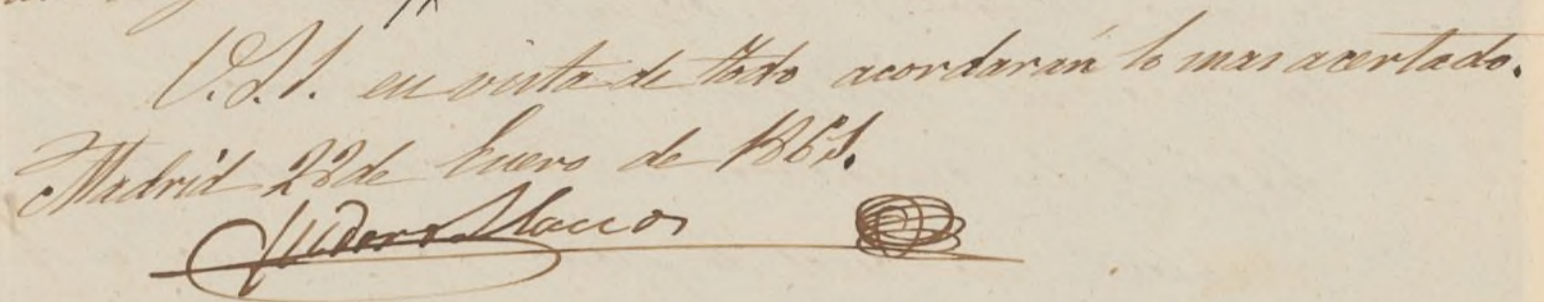 V.S.S. en vista de todo acordarán lo mas acertado.
Madrid 22 de Enero de 1861.
Isidoro Llanos